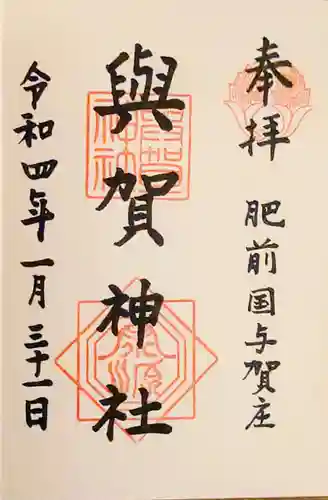 奉拝
肥前国与賀庄
與賀神社
令和四年一月三十一日